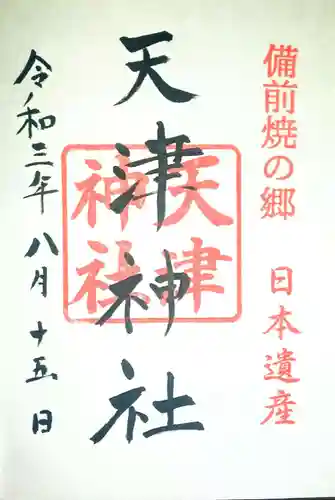 備前焼の郷 日本遺産
天津神社
天津
神社
令和三年 八月十五日